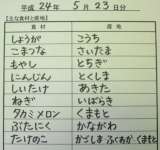 平成 24年 5月 23日分
【主な食材と産地】
食材 産地
しょうが こうち
こまつな さいたま
もやし とちぎ
にんじん とくしま
しいたけ あきた
ねぎ いばらき
タカミメロン くまもと
ぶたにく かながわ
たけのこ かごしま ふくおか くまもと